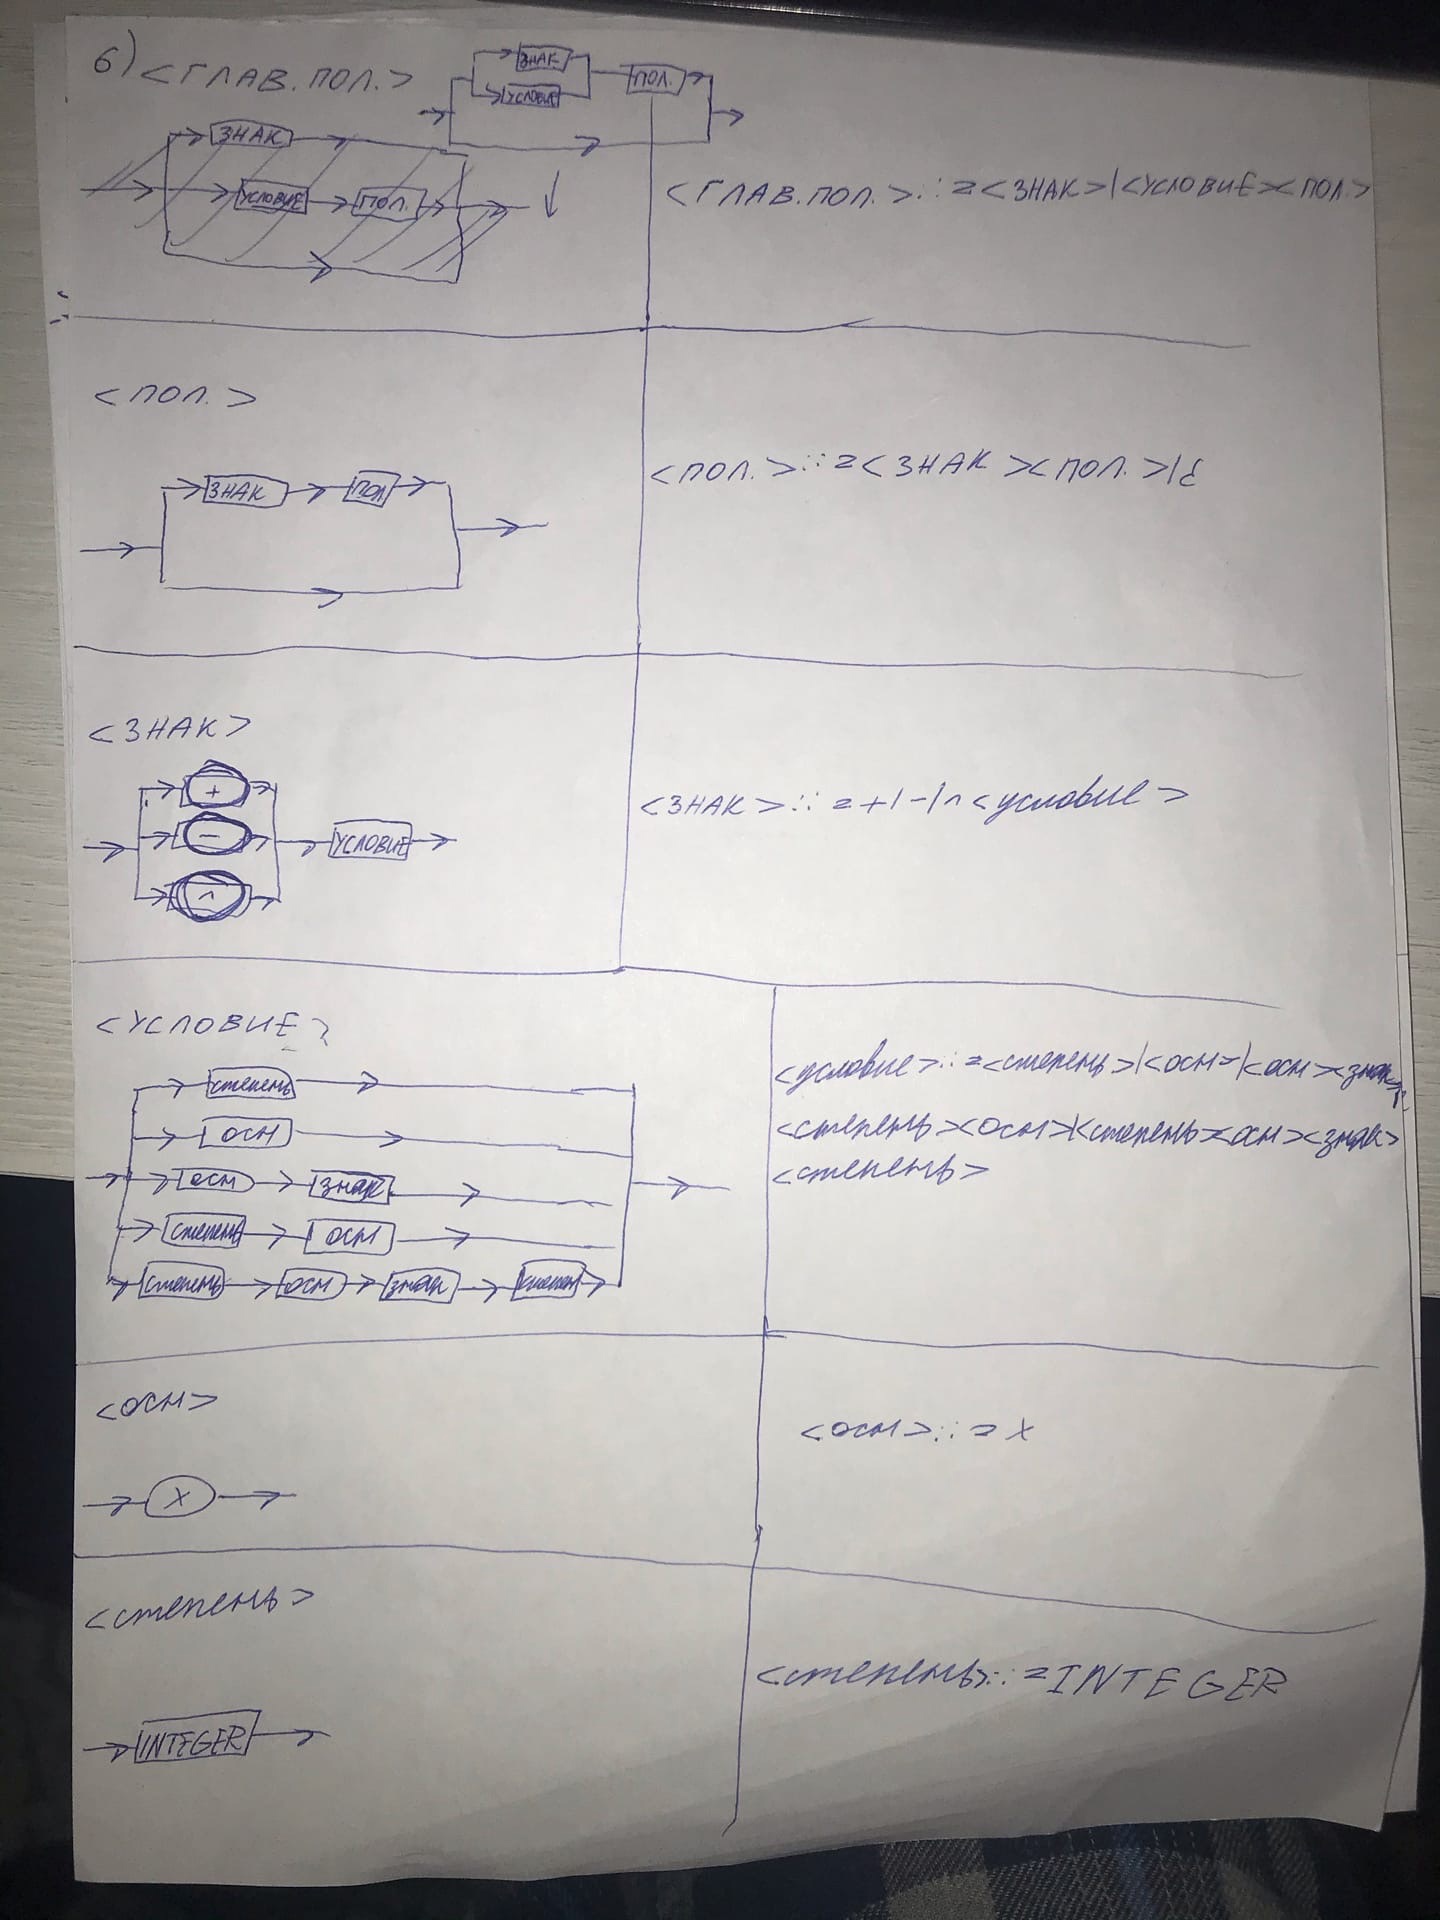 6) <ГЛАВ.ПОЛ.>
ЗНАК
УСЛОВИЕ
ПОЛ.
ЗНАК
УСЛОВИЕ ПОЛ.
<ГЛАВ.ПОЛ.>::=<ЗНАК>|<УСЛОВИЕ><ПОЛ>
<ПОЛ.>
ЗНАК ПОЛ
<ПОЛ.>::=<ЗНАК><ПОЛ.>|ε
<ЗНАК>
+
-
^
УСЛОВИЕ
<ЗНАК>::=+|-|^<условие>
<УСЛОВИЕ>
степень
осн
осн знак
степень осн
степень осн знак степен
<условие>::=<степень>|<осн>|<осн><знак>|
<степень><осн>|<степень><осн><знак>
<степень>
<осн>
X
<осн>::=X
<степень>
INTEGER
<степень>::=INTEGER